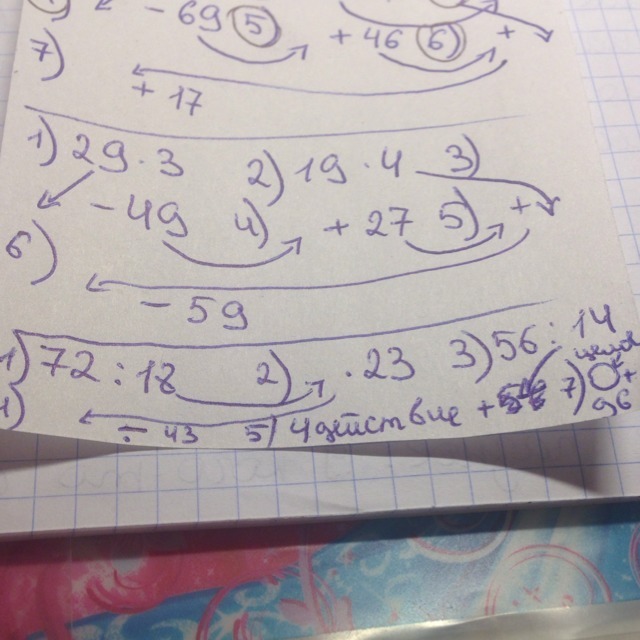 - 69 5
7) + 46 6 +
+ 17
1) 29 · 3 2) 19 · 4 3)
- 49 4) + 27 5) +
6)
- 59
1) 72 : 18 2) · 23 3) 56 : 14
4) - 43 5) 4 действие + 7) 0 +
96